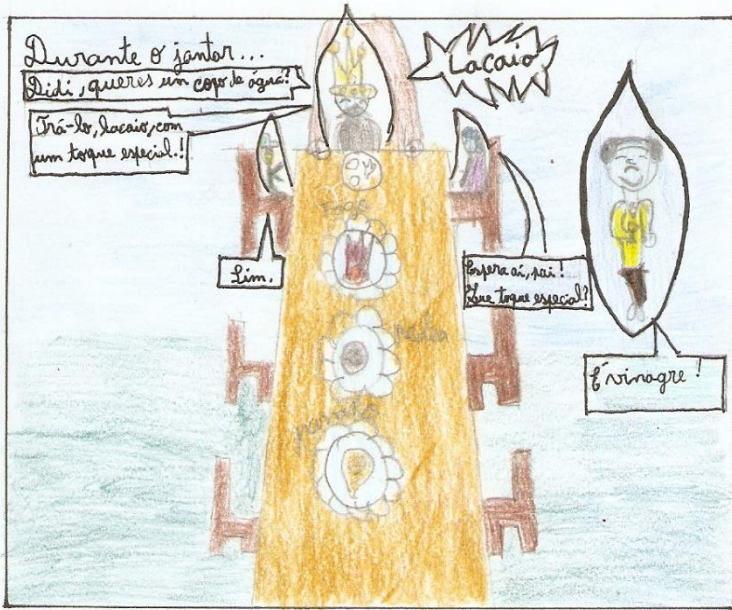 Durante o jantar...
Didi, queres um copo de água?
Trá-lo, lacaio, com
um toque especial!
Lacaio
Sim.
Espera aí, pai!
Que toque especial?
É vinagre!